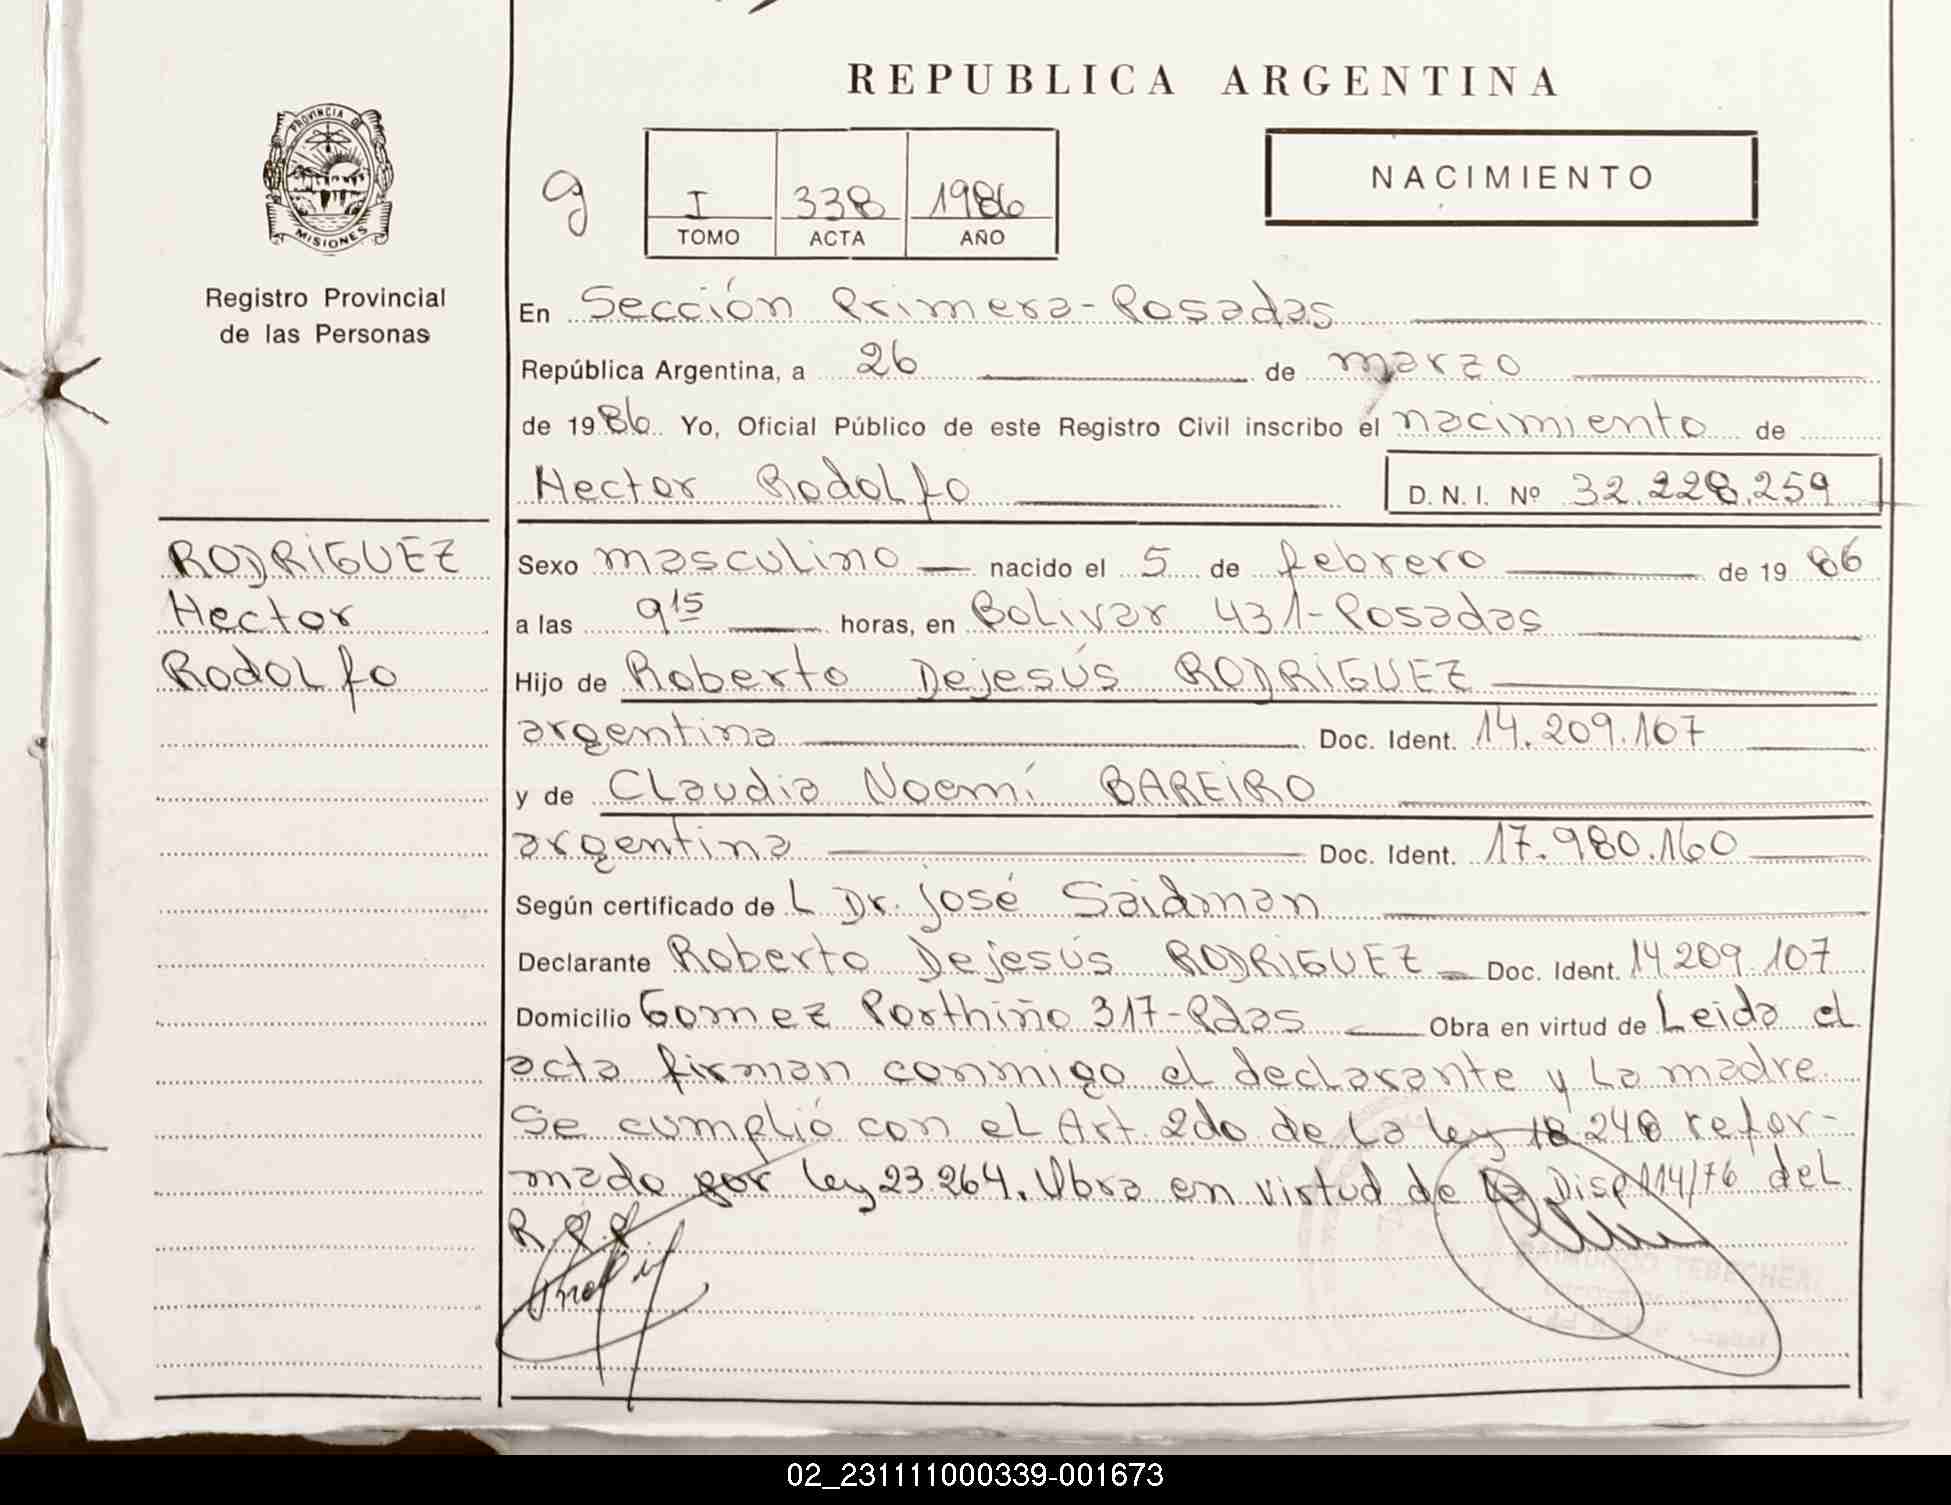 REPUBLICA ARGENTINA
PROVINCIA DE
MISIONES
Registro Provincial
de las Personas
g
I 338 1986
TOMO ACTA AÑO
NACIMIENTO
En Sección Primera-Posadas
República Argentina, a 26 de marzo
de 1986 Yo, Oficial Público de este Registro Civil inscribo el nacimiento de
Hector Rodolfo D.N.I. Nº 32.228.259
RODRIGUEZ
Hector
Rodolfo
Sexo masculino nacido el 5 de febrero de 1986
a las 9 15 horas, en Bolivar 431-Posadas
Hijo de Roberto Dejesús RODRIGUEZ
argentina Doc. Ident. 14.209.107
y de Claudia Noemí BAREIRO
argentina Doc. Ident. 17.980.160
Según certificado del Dr. José Saidman
Declarante Roberto Dejesús RODRIGUEZ Doc. Ident. 14 209.107
Domicilio Gomez Porthiño 317-Pdas Obra en virtud de Leida el
acta firman conmigo el declarante y la madre
Se cumplió con el Art. 2do de la ley 18 248 refor-
mado por ley 23.264. Obra en virtud de la Disp 114/76 del
R.P.P.
02_231111000339-001673